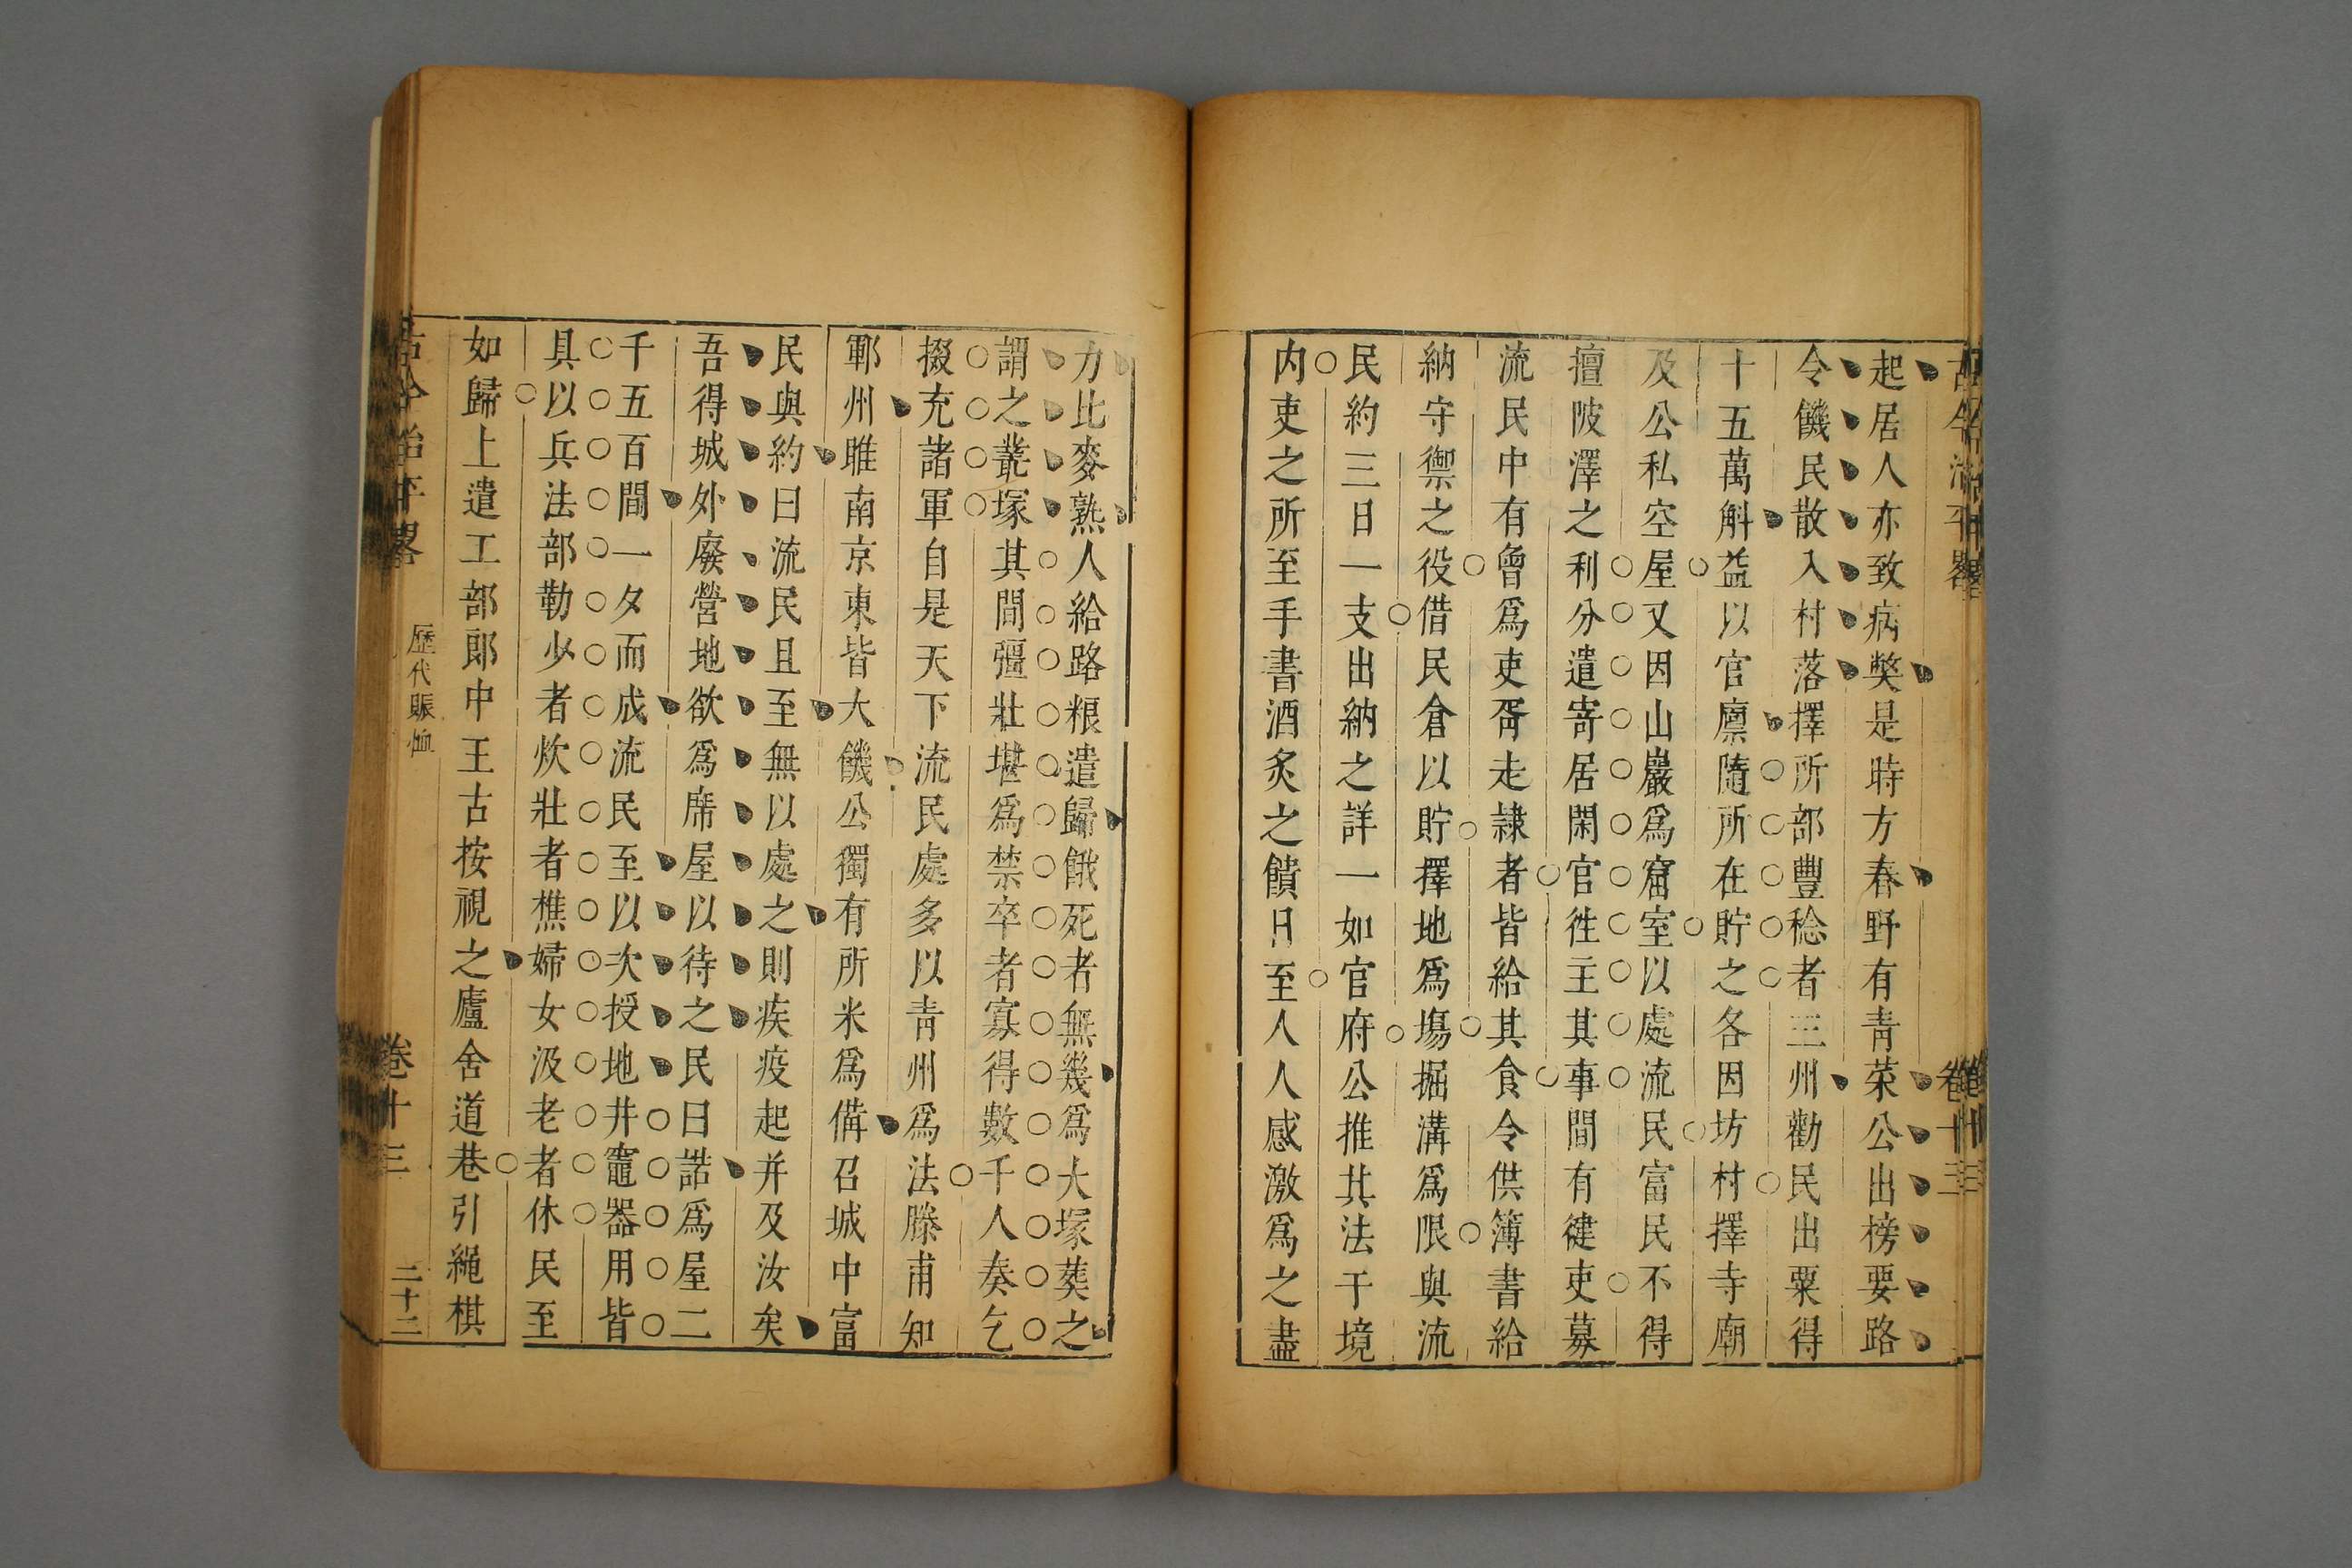 古今治平畧
卷十三
起居人亦致病獘是時方春野有靑菜公出榜要路
令饑民散入村落擇所部豐稔者三州勸民出粟得
十五萬斛益以官廪隨所在貯之各因坊村擇寺廟
及公私空屋又因山巖爲窟室以處流民富民不得
擅陂澤之利分遣寄居閑官徃主其事間有健吏募
流民中有曾爲吏胥走隷者皆給其食令供簿書給
納守禦之役借民倉以貯擇地爲塲掘溝爲限與流
民約三日一支出納之詳一如官府公推其法于境
内吏之所至手書酒炙之饋日至人人感激爲之盡
力比麥熟人給路粮遣歸餓死者無幾爲大塚葬之
謂之叢塚其間彊壯堪爲禁卒者寡得數千人奏乞
掇充諸軍自是天下流民處多以靑州爲法滕甫知
鄆州睢南京東皆大饑公獨有所米爲備召城中富
民與約曰流民且至無以處之則疾疫起并及汝矣
吾得城外廢營地欲爲席屋以待之民曰諾爲屋二
千五百間一夕而成流民至以次授地井竈器用皆
具以兵法部勒少者炊壯者樵婦女汲老者休民至
如歸上遣工部郎中王古按視之廬舍道巷引繩棋
古今治平畧
歷代賑恤
卷十三
二十二